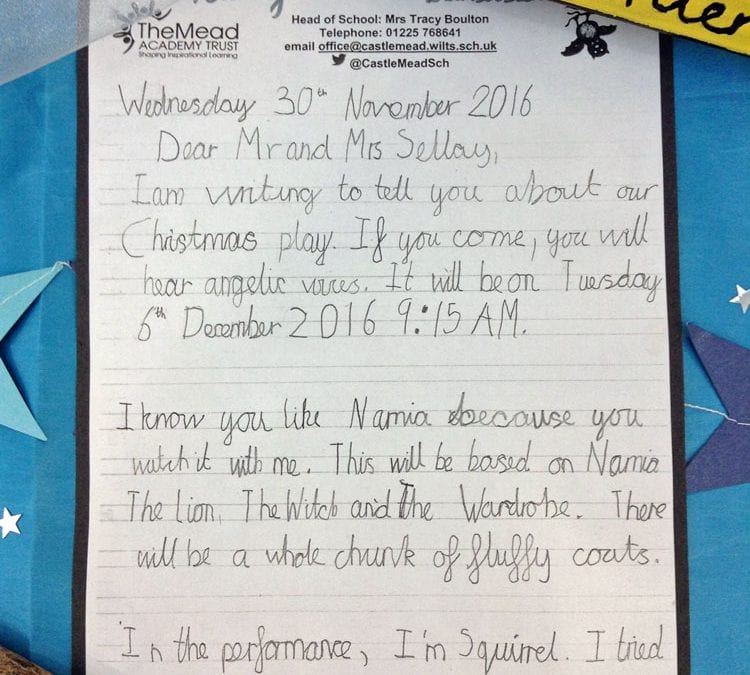 TheMead
ACADEMY TRUST
Shaping Inspirational Learning
Head of School: Mrs Tracy Boulton
Telephone: 01225 768641
email office@castlemead.wilts.sch.uk
@CastleMeadSch
Wednesday 30th November 2016
Dear Mr and Mrs Sellay,
I am writing to tell you about our
Christmas play. If you come, you will
hear angelic voices. It will be on Tuesday
6th December 2016 9:15 AM.
I know you like Narnia because you
watch it with me. This will be based on Narnia
The Lion, The Witch and The Wardrobe. There
will be a whole chunk of fluffy coats.
In the performance, I'm Squirrel. I tried